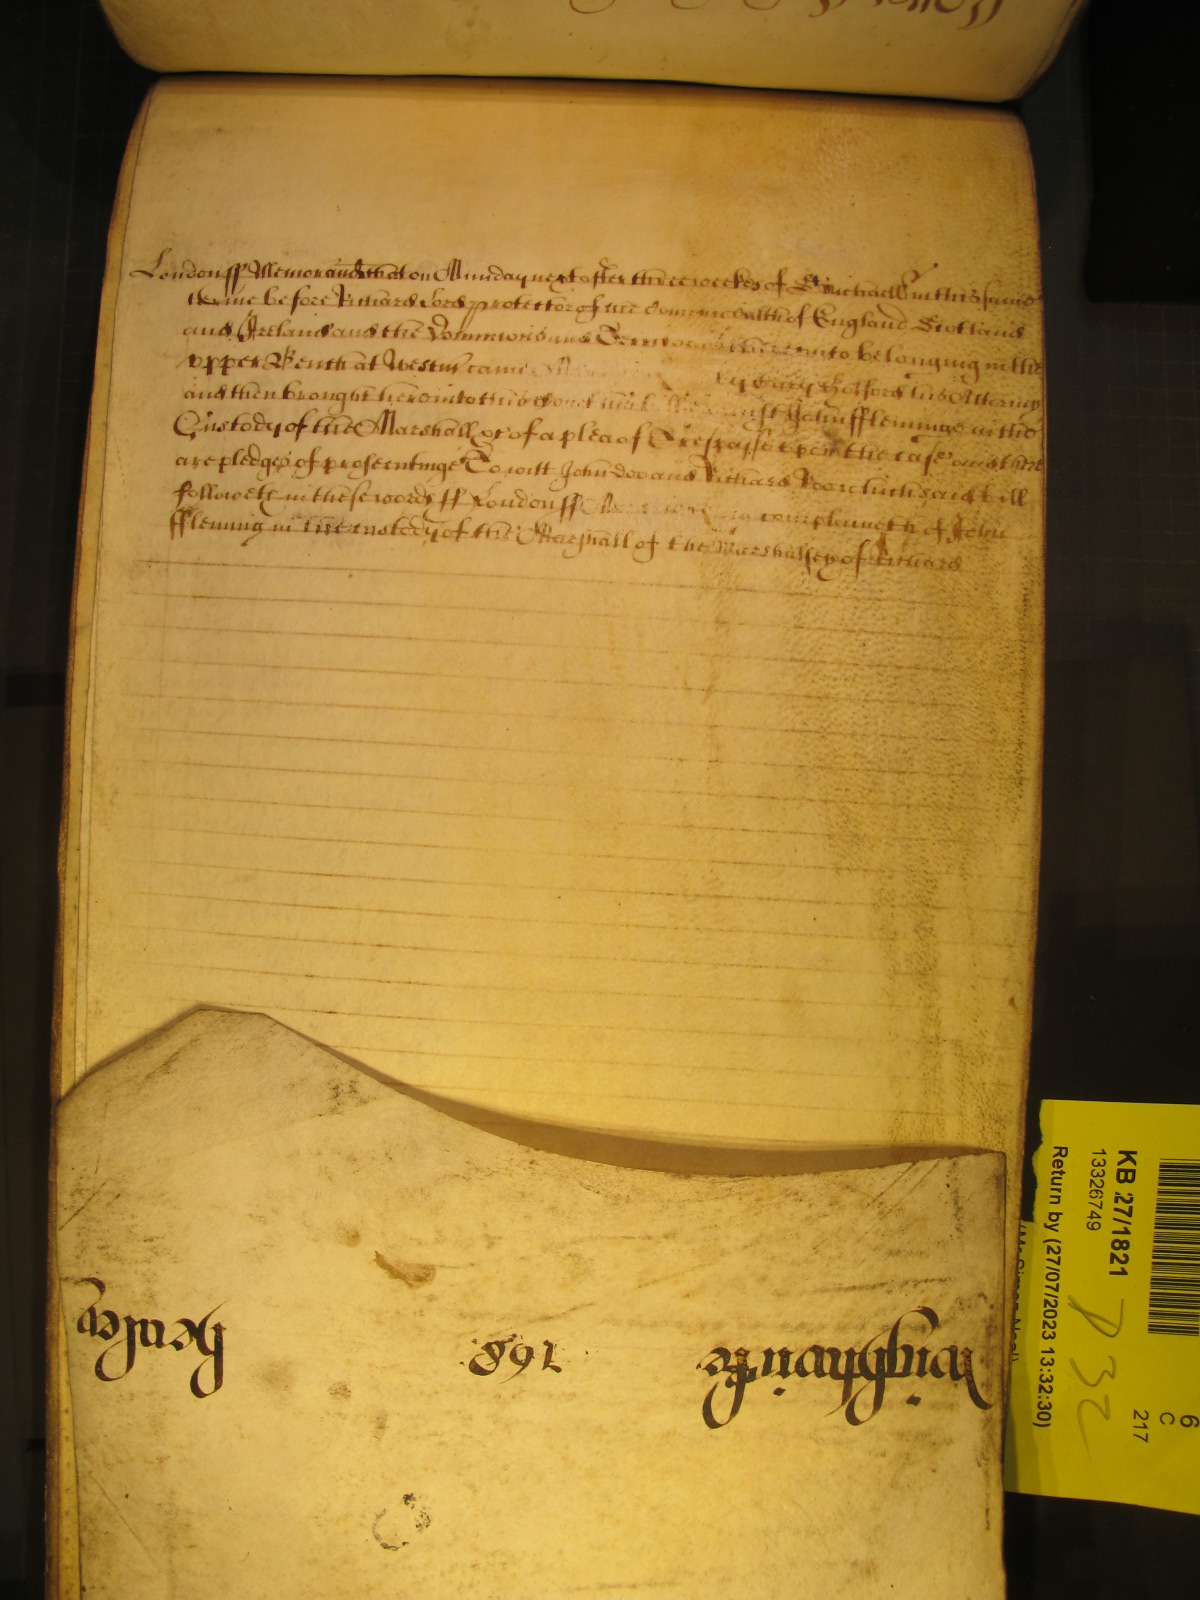 London ss Memorandu that on Munday next after three weekes of St Michaell in this same
terme before Richard Lord protector of the Commonwealth of England Scotland
and Ireland and the Dominions and Territories thereunto belonging in the
upper Bench at Westm came by Gary Holford his Attorney
and then brought here into the Court his bill against John fflemings in the
Custody of the Marshall &c of a plea of Trespasse upon the case and there
are pledges of prosecutinge To witt John Doo and Richard Roo which said bill
followeth in these words ss London ss complaineth of John
ffleming in the custody of the Marshall of the Marshalsey of Richard
Wightwicke
168
henley
KB 27/1821
13326749
Return by (27/07/2023 13:32:30)
6
C
217
D 32